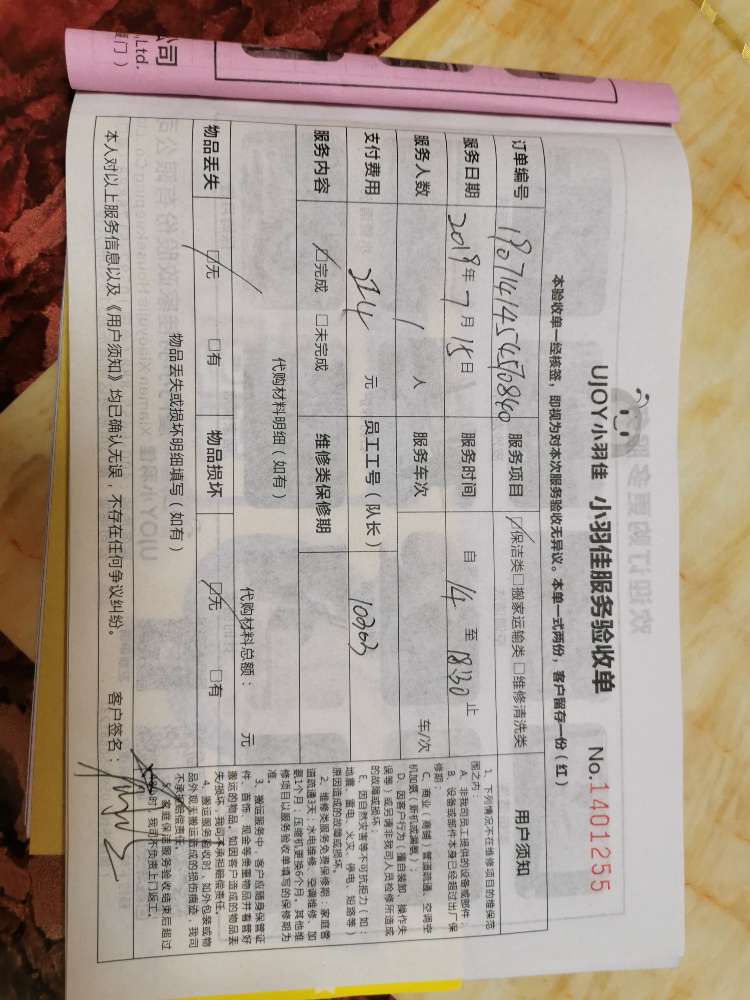 公司
,Ltd.
厦门）
UJOY小羽佳 小羽佳服务验收单 No.1401255
本验收单一经核签，即视为对本次服务验收无异议。本单一式两份，客户留存一份（红）
订单编号 服务项目 ☑保洁类□搬家运输类□维修清洗类
服务日期 2019年7月15日 服务时间 自 14 至 18:30 止
服务人数 1 人 服务车次 车/次
支付费用 元 员工工号（队长）
服务内容 ☑完成 □未完成 维修类保修期
代购材料明细（如有） 代购材料总额： 元
物品丢失 ☑无 □有 物品损坏 ☑无 □有
物品丢失或损坏明细填写（如有）
本人对以上服务信息以及《用户须知》均已确认无误，不存在任何争议纠纷。 客户签名：
用户须知
1、下列情况不在维修项目的维保范
围之内：
A、非我司员工提供的设备或部件；
B、设备或部件本身已经超过出厂保
修期；
C、商业（商铺）管道疏通、空调空
机加氨（新机或漏氨）；
D、因客户行为（擅自装卸、操作失
误等）或另请非我司人员检修所造成
的故障或损坏；
E、因自然灾害等不可抗拒力（如：
地震、雷电、火灾、停电、短路等）
原因造成的故障或损坏。
2、维修类服务免费保修期：家庭管
道疏通3天；水电维修、空调维修、加
氨1个月；压缩机更换6个月。其他维
修项目以服务验收单填写的保修期为
准。
3、搬运服务中，客户应随身保管证
件、首饰、现金等贵重物品并看管好
搬运的物品。如因客户造成的物品丢
失/损坏，我司不承担赔偿责任。
4、搬运服务验收时，如外包装或物
品外观无搬运造成的损伤痕迹，我司
不承担赔偿责任。
家庭保洁服务验收结束后超过
小时，我司不负责上门返工。